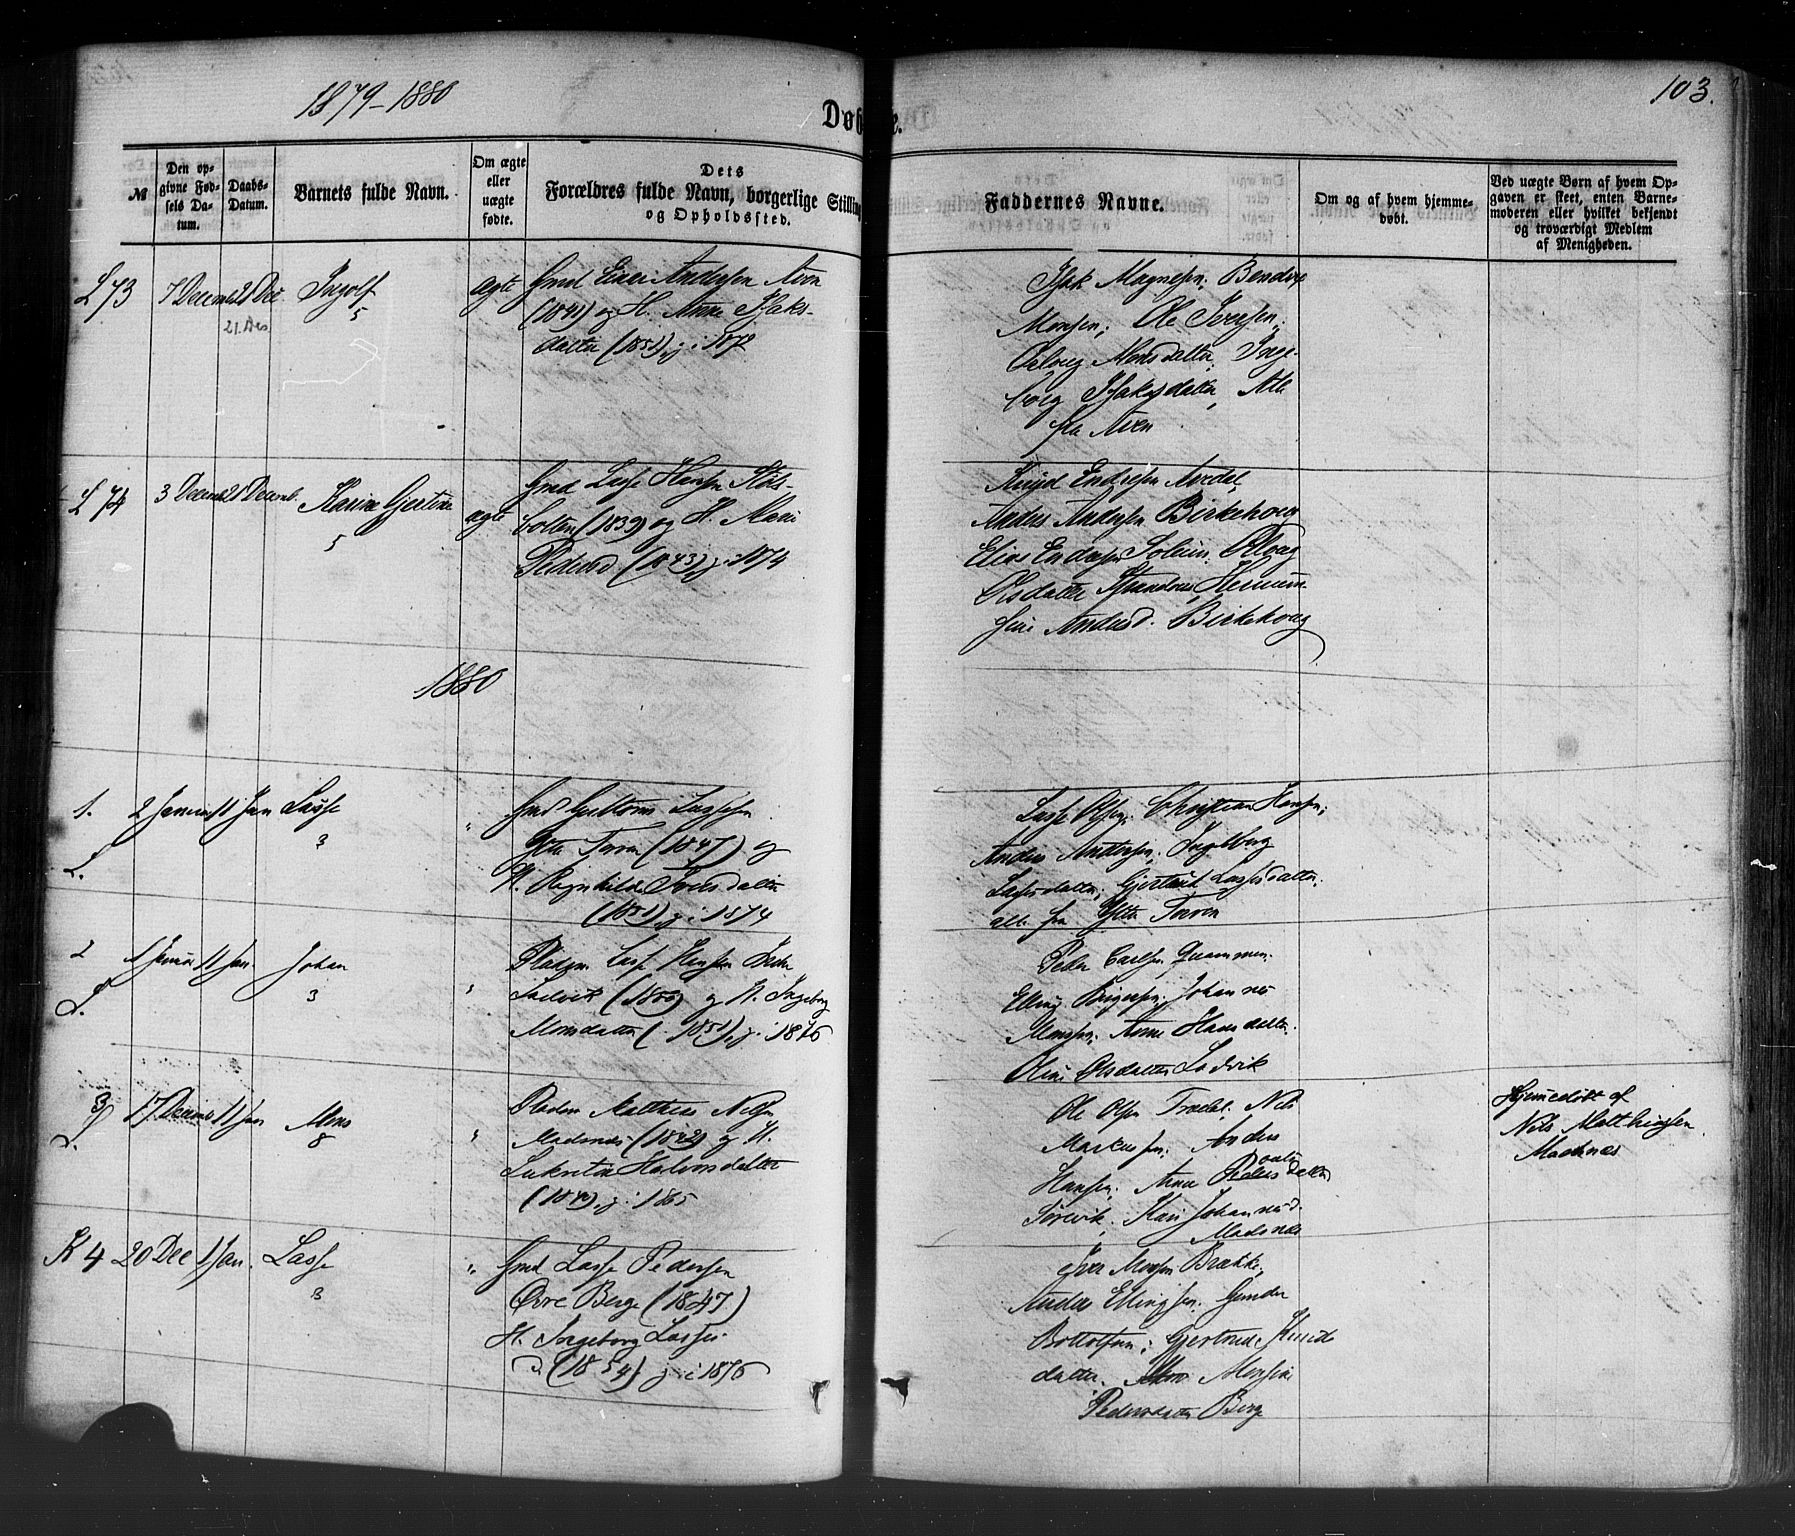 1879-1880
103.
Døbte.
№
Den opgivne Fødsels Datum.
Daabs-Datum.
Barnets fulde Navn.
Om ægte eller uægte fødte.
Dets Forældres fulde Navn, borgerlige Stilling og Opholdssted.
Faddernes Navne.
Om og af hvem hjemmedøbt.
Ved uægte Børn af hvem Opgaven er skeet, enten Barnemoderen eller hvilket bekjendt og troværdigt Medlem af Menigheden.
L 73 7 Decemb 21 Dec Ingolf ægte Gmd Einar Andersen Aven
21. Des. 5 (1841) og H. Anne Isaks-
datter (1851) g. i 1872
Isak Magnesen, Bendix
Monsen; Ole Iversen,
Oeloug Monsdatter, Inge-
borg Isaksdatter, Alle
fra Aven
L 74 3 Decemb 21 Decemb. Karine Gjertine ægte Gmd Lasse Hansen
5 botten (1839) og H. Marie
Pedersd (1843) g. i 1874
Knud Endresen Averdal,
Anders Andersen Birkehoug
Elias Endresen Soleim, Oloug
Olsdatter Hermine
Andersd. Birkehoug
1880
1. 2 Januar 11 Jan Lasse " Gmd Guttorm Lassesen
L. 3 Ytre Torven (1847) og
H. Ragnhilde Iversdatter
(1851) g. i 1874
Lasse Olsen; Christian Hansen;
Anders Andersen; Ingeborg
Lassesdatter; Gjertrud Lassesdatter;
alle fra Ytre Torven
2 1 Januar 11 Jan. Johan " Pladsm. Lasse Hansen
L. 3 Ladvik (1850) og H. Ingeborg
Monsdatter (1851) g. i 1876
Peder Carlsen Quammen.
Elling Birgersen; Johannes
Monsen; Anne Hansdatter.
Oline Olsdatter Ladvik
3 17 Decemb 11 Jan Mons " Pladsm Matthias Nilsen
L. 8 Madsnæs (1842) og H.
Lukretia Halvorsdatter
(1840) g. i 1865
Ole Olsen Trædal. Nils
Markussen; Anders
Hansen; Anne Pedersdatter
Torevik. Kari Johannesd.
Madsnæs
Hjemmedøbt af
Nils Matthiassen
Madsnæs
K 4 20 Dec 1 Jan. Lasse " Gmd Lasse Pedersen
3 Øvre Berge (1847)
H. Ingeborg Lasses-
d. (1854) g. i 1876
Iver Monsen Brække,
Anders Ellingsen. Gunder
Bottolfsen; Gjertrud Knuds
datter. Monsine
Pedersdatter Berge